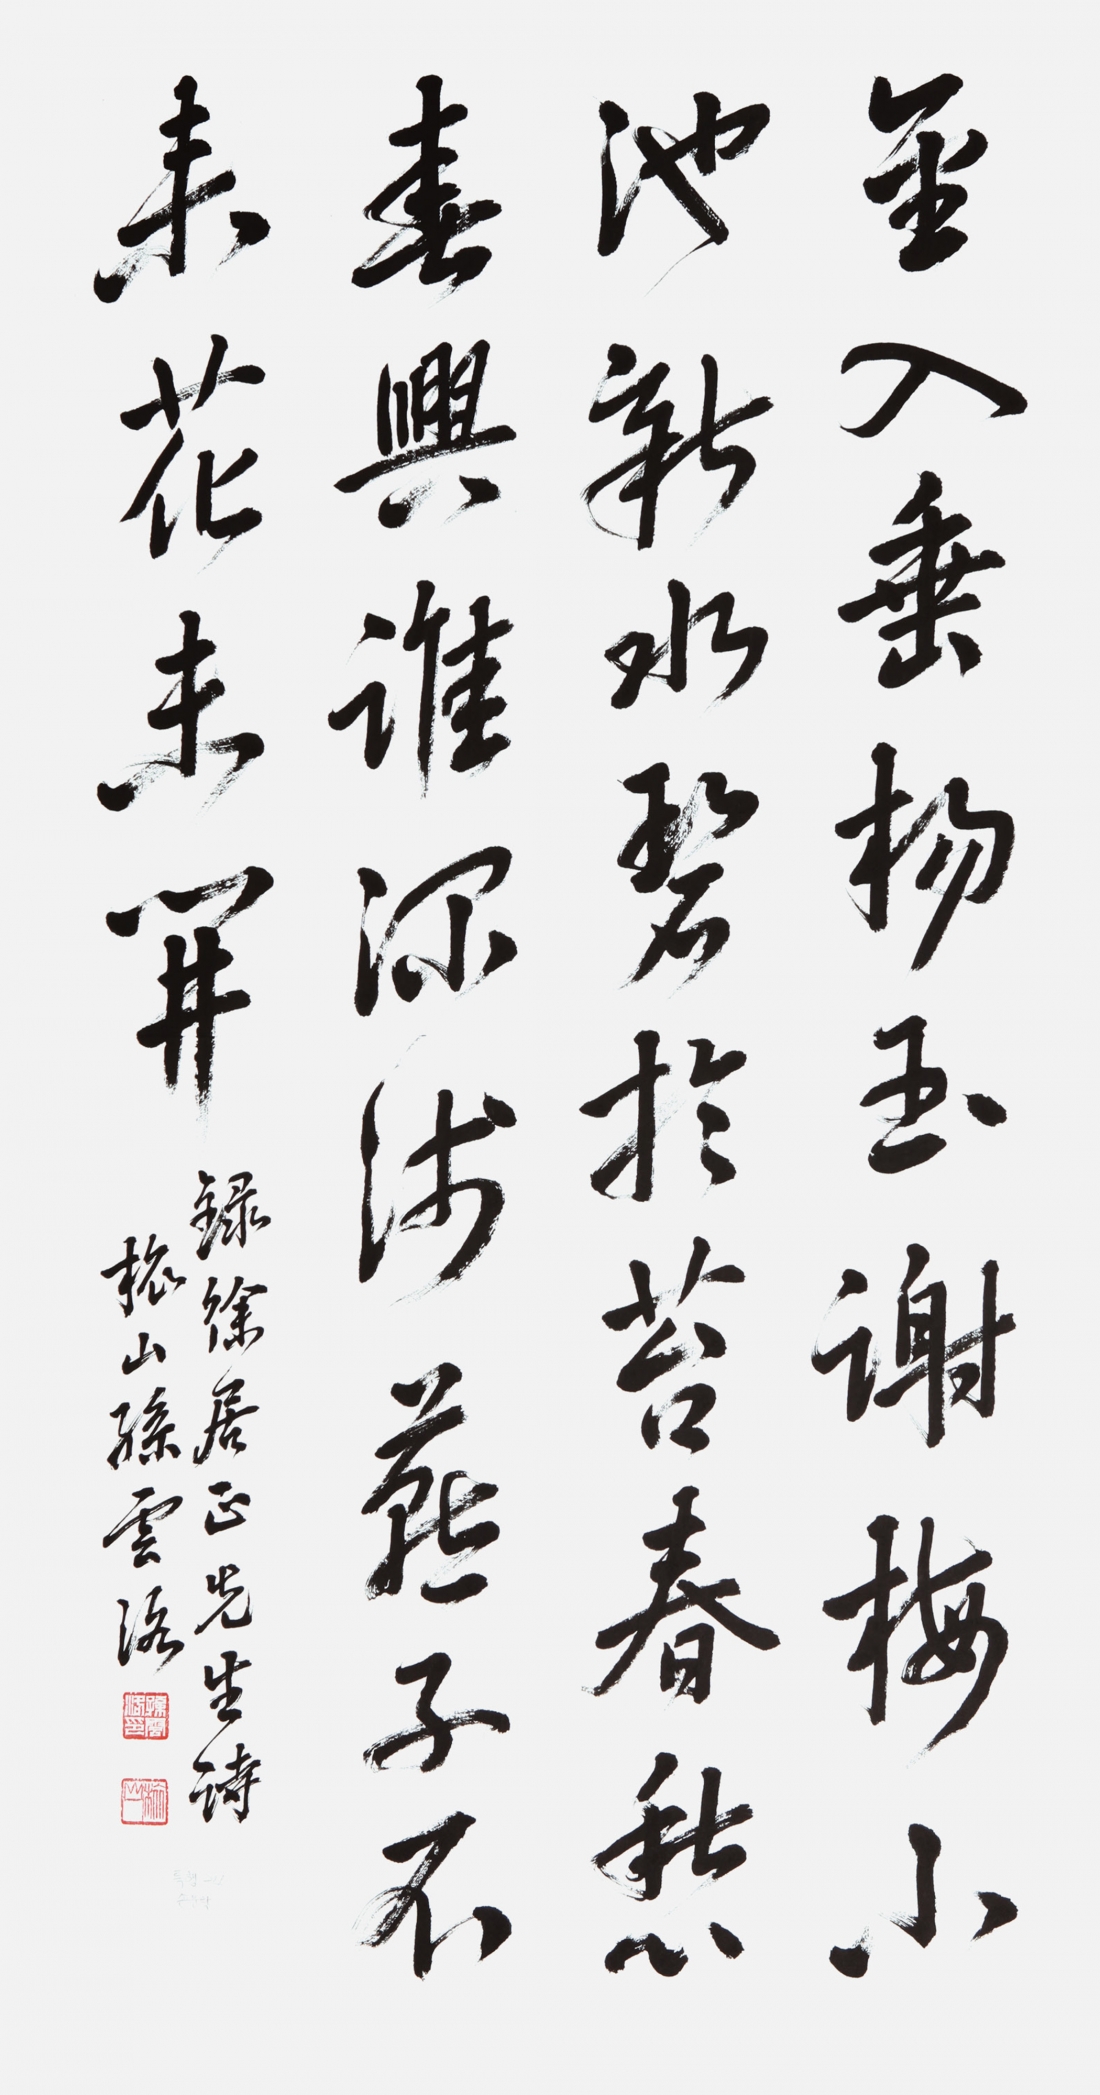 金入垂楊玉謝梅小
池新水碧於苔春愁
春興誰深淺燕子不
來花未開
錄徐居正先生詩
孫雲洛